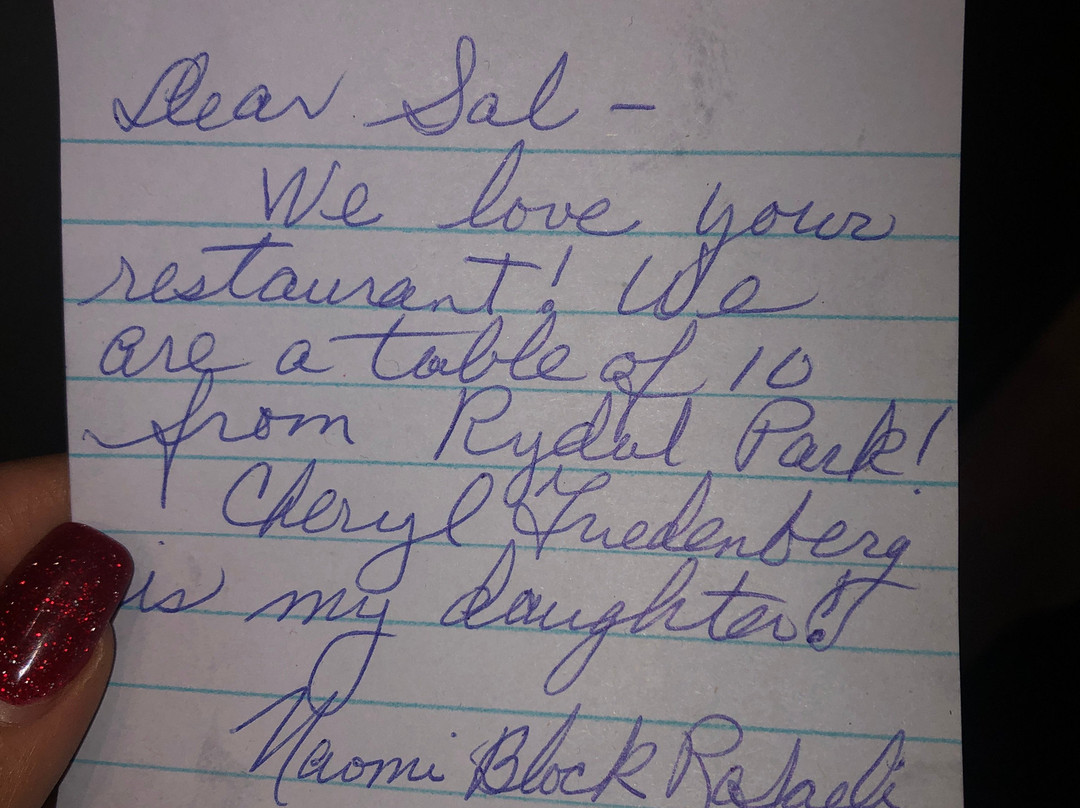 Dear Sal -
We love your
restaurant! We
are a table of 10
from Rydal Park!
Cheryl Friedenberg
is my daughter!
Naomi Block